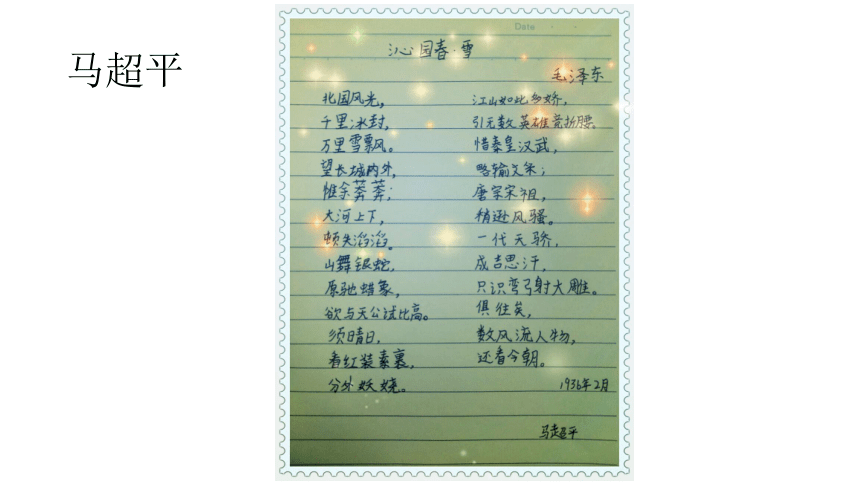 马超平
Date
沁园春·雪
毛泽东
北国风光,
千里冰封,
万里雪飘。
望长城内外,
惟余莽莽;
大河上下,
顿失滔滔。
山舞银蛇,
原驰蜡象,
欲与天公试比高。
须晴日,
看红装素裹,
分外妖娆。
江山如此多娇,
引无数英雄竞折腰。
惜秦皇汉武,
略输文采;
唐宗宋祖,
稍逊风骚。
一代天骄,
成吉思汗,
只识弯弓射大雕。
俱往矣,
数风流人物,
还看今朝。
1936年2月
马超平